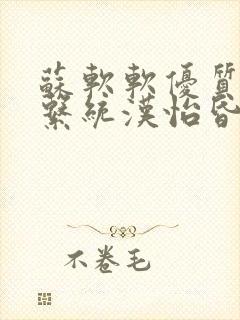 蘇軟軟優質
繫統漢怡
不卷毛